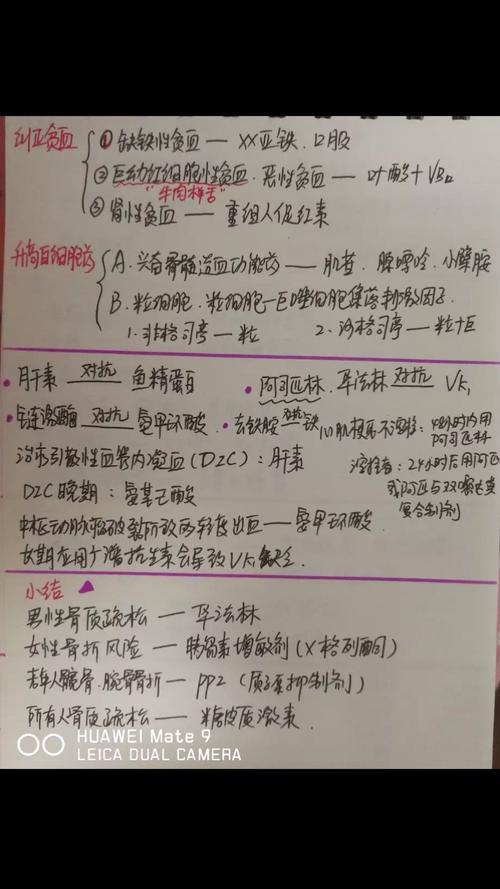 纠正贫血
① 缺铁性贫血 — XX亚铁、口服
② 巨幼红细胞性贫血、恶性贫血 — 叶酸 + VB12
"牛肉样舌"
③ 肾性贫血 — 重组人促红素
升高白细胞药
A. 兴奋骨髓造血功能药 — 肌苷、腺嘌呤、小檗胺
B. 粒细胞、粒细胞-巨噬细胞集落刺激因子
1. 非格司亭 — 粒 2. 沙格司亭 — 粒+巨
• 肝素 对抗 鱼精蛋白 • 阿司匹林、华法林 对抗 VK1
• 链激酶 对抗 氨甲环酸 • 去铁胺 对抗 铁
心肌梗死 不溶栓: 48小时内用
阿司匹林
溶栓者: 24小时后用阿匹
或阿匹与双嘧达莫
复合制剂
治疗引散性血管内凝血 (DIC): 肝素
DIC晚期: 氨基己酸
中枢动脉瘤破裂所致的轻度出血 — 氨甲环酸
长期应用广谱抗生素会导致VK1缺乏.
小结
男性骨质疏松 — 华法林
女性骨折风险 — 胰岛素增敏剂 (X格列酮)
老年人髋骨、腕骨骨折 — PPI (质子泵抑制剂)
所有人骨质疏松 — 糖皮质激素.
HUAWEI Mate 9
LEICA DUAL CAMERA